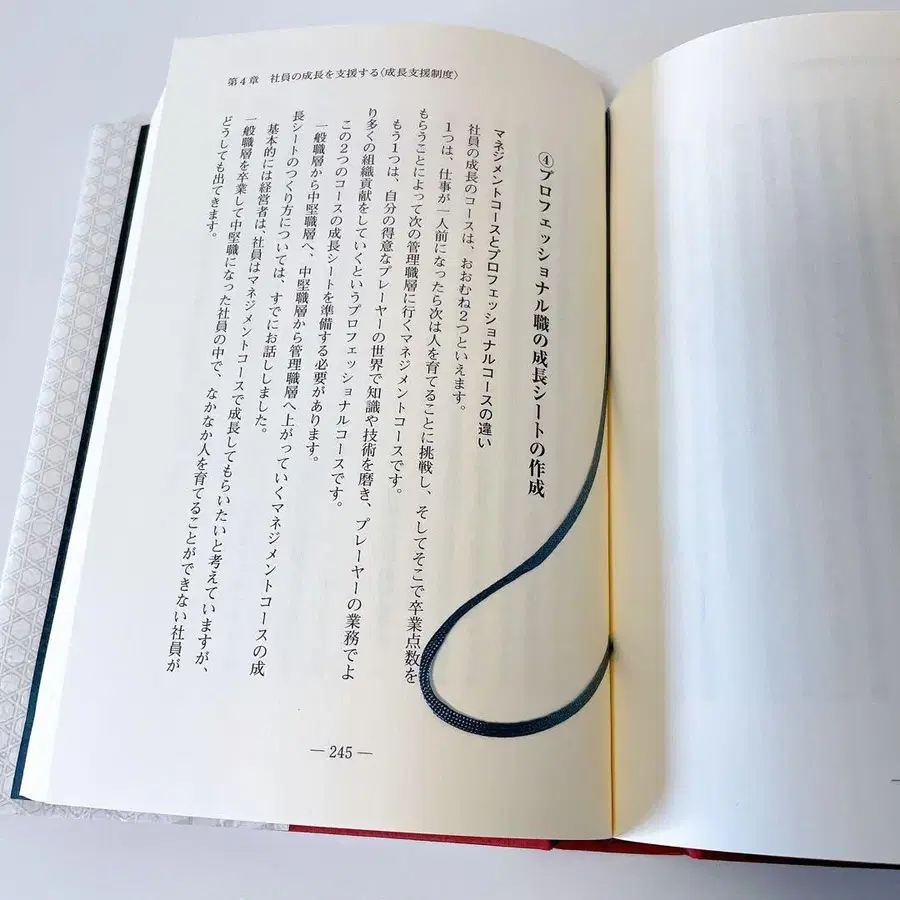 第4章　社員の成長を支援する〈成長支援制度〉
④プロフェッショナル職の成長シートの作成
マネジメントコースとプロフェッショナルコースの違い
社員の成長のコースは、おおむね2つといえます。
1つは、仕事が一人前になったら次は人を育てることに挑戦し、そしてそこで卒業点数を
もらうことによって次の管理職層に行くマネジメントコースです。
もう1つは、自分の得意なプレーヤーの世界で知識や技術を磨き、プレーヤーの業務でよ
り多くの組織貢献をしていくというプロフェッショナルコースです。
この2つのコースの成長シートを準備する必要があります。
一般職層から中堅職層へ、中堅職層から管理職層へ上がっていくマネジメントコースの成
長シートのつくり方については、すでにお話ししました。
基本的には経営者は、社員はマネジメントコースで成長してもらいたいと考えていますが、
一般職層を卒業して中堅職になった社員の中で、なかなか人を育てることができない社員が
どうしても出てきます。
― 245 ―